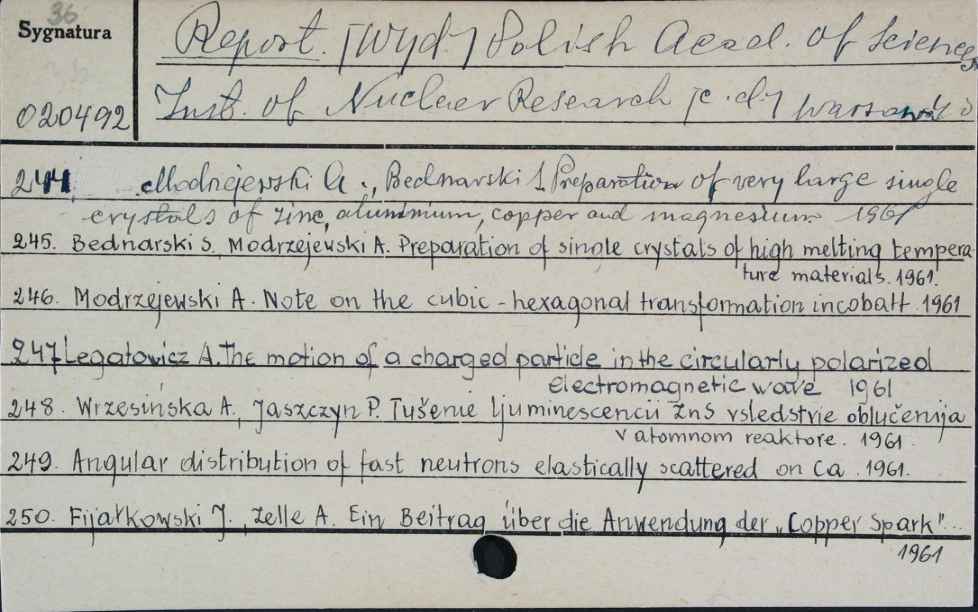 36
Sygnatura
020492
Report. [Wyd.] Polish Acad. of Sciences
Inst. of Nuclear Research [c.d.] Warszawa
244 Modrzejewski A., Bednarski S. Preparation of very large single
crystals of zinc, aluminium, copper and magnesium 1961
245. Bednarski S, Modrzejewski A. Preparation of single crystals of high melting tempera
ture materials. 1961.
246. Modrzejewski A. Note on the cubic - hexagonal transformation in cobalt. 1961
247 Legatowicz A. The motion of a charged particle in the circularly polarized
electromagnetic wave 1961
248. Wrzesińska A., Jaszczyn P. Tušenie ljuminescencii ZnS vsledstvie oblučenija
v atomnom reaktore. 1961
249. Angular distribution of fast neutrons elastically scattered on Ca. 1961.
250. Fijałkowski J., Zelle A. Ein Beitrag über die Anwendung der „Copper Spark"...
1961